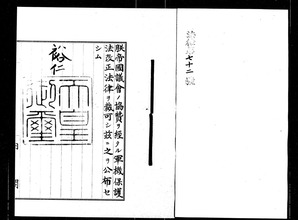 法律第七十二號
朕帝國議會ノ協賛ヲ經タル軍機保護
法改正法律ヲ裁可シ茲ニ之ヲ公布セ
シム
裕仁
天皇
御璽